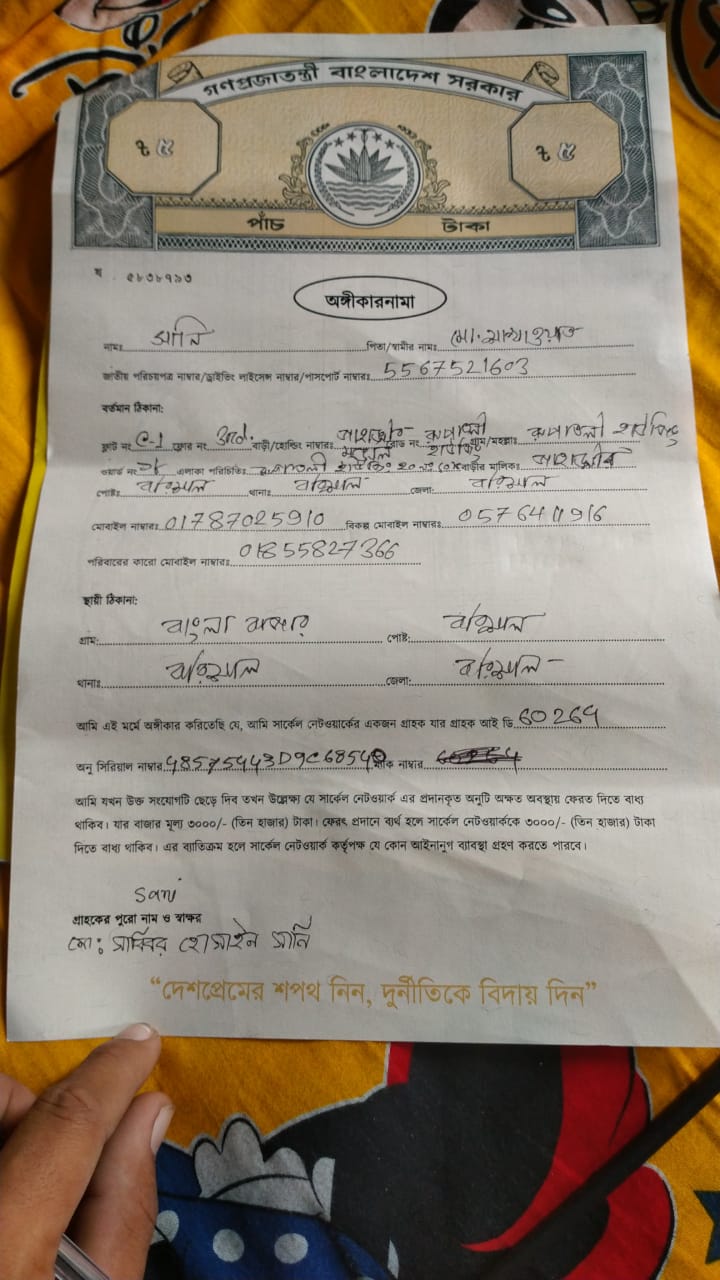 গণপ্রজাতন্ত্রী বাংলাদেশ সরকার
৳ ৫ ৳ ৫
পাঁচ টাকা
খ ৫৮৩৮৭৯৩
অঙ্গীকারনামা
নামঃ সানি পিতা/স্বামীর নামঃ মো.
জাতীয় পরিচয়পত্র নাম্বার/ড্রাইভিং লাইসেন্স নাম্বার/পাসপোর্ট নাম্বারঃ 5567521603
বর্তমান ঠিকানা:
ফ্লাট নং C-1 ফ্লোর নং 3rd. বাড়ী/হোল্ডিং নাম্বারঃ রোড নং রূপাতলী হাউজিং গ্রাম/মহল্লাঃ রূপাতলী হাউজিং
ওয়ার্ড নং এলাকা পরিচিতিঃ রূপাতলী হাউজিং বাড়ীর মালিকঃ
পোষ্টঃ বরিশাল থানাঃ বরিশাল জেলা: বরিশাল
মোবাইল নাম্বারঃ 01787025910 বিকল্প মোবাইল নাম্বারঃ
পরিবারের কারো মোবাইল নাম্বারঃ 01855827366
স্থায়ী ঠিকানা:
গ্রাম: বাংলা বাজার পোষ্ট: বরিশাল
থানাঃ বরিশাল জেলা: বরিশাল
আমি এই মর্মে অঙ্গীকার করিতেছি যে, আমি সার্কেল নেটওয়ার্কের একজন গ্রাহক যার গ্রাহক আই ডি 60264
অনু সিরিয়াল নাম্বার নাম্বার
আমি যখন উক্ত সংযোগটি ছেড়ে দিব তখন উল্লেক্ষ্য যে সার্কেল নেটওয়ার্ক এর প্রদানকৃত অনুটি অক্ষত অবস্থায় ফেরত দিতে বাধ্য
থাকিব। যার বাজার মূল্য ৩০০০/- (তিন হাজার) টাকা। ফেরৎ প্রদানে ব্যর্থ হলে সার্কেল নেটওয়ার্ককে ৩০০০/- (তিন হাজার) টাকা
দিতে বাধ্য থাকিব। এর ব্যাতিক্রম হলে সার্কেল নেটওয়ার্ক কর্তৃপক্ষ যে কোন আইনানুগ ব্যাবস্থা গ্রহণ করতে পারবে।
Sani
গ্রাহকের পুরো নাম ও স্বাক্ষর
মো: সাব্বির হোসাইন সানি
“দেশপ্রেমের শপথ নিন, দুর্নীতিকে বিদায় দিন”